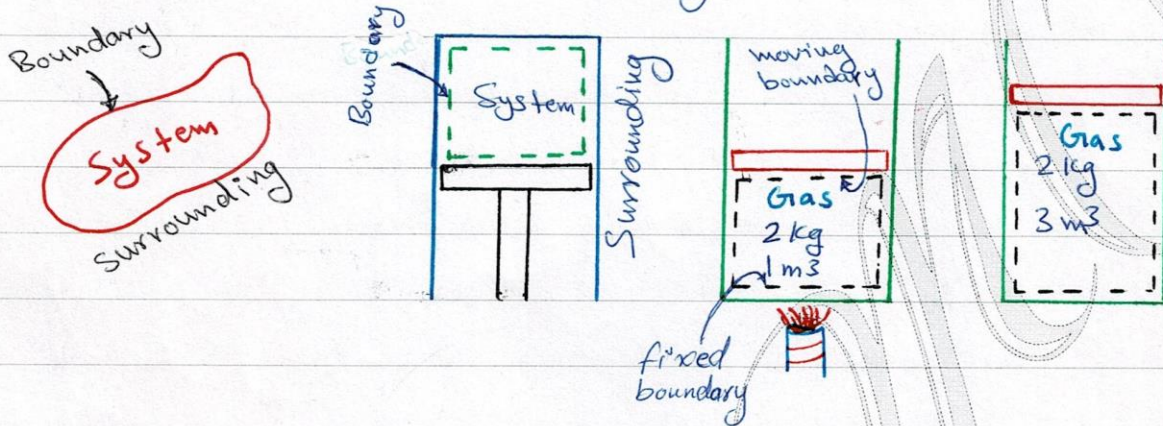 Boundary
System
Surrounding
Boundary
System
Surrounding
moving
boundary
Gas
2 kg
1 m3
fixed
boundary
Gas
2 kg
3 m3